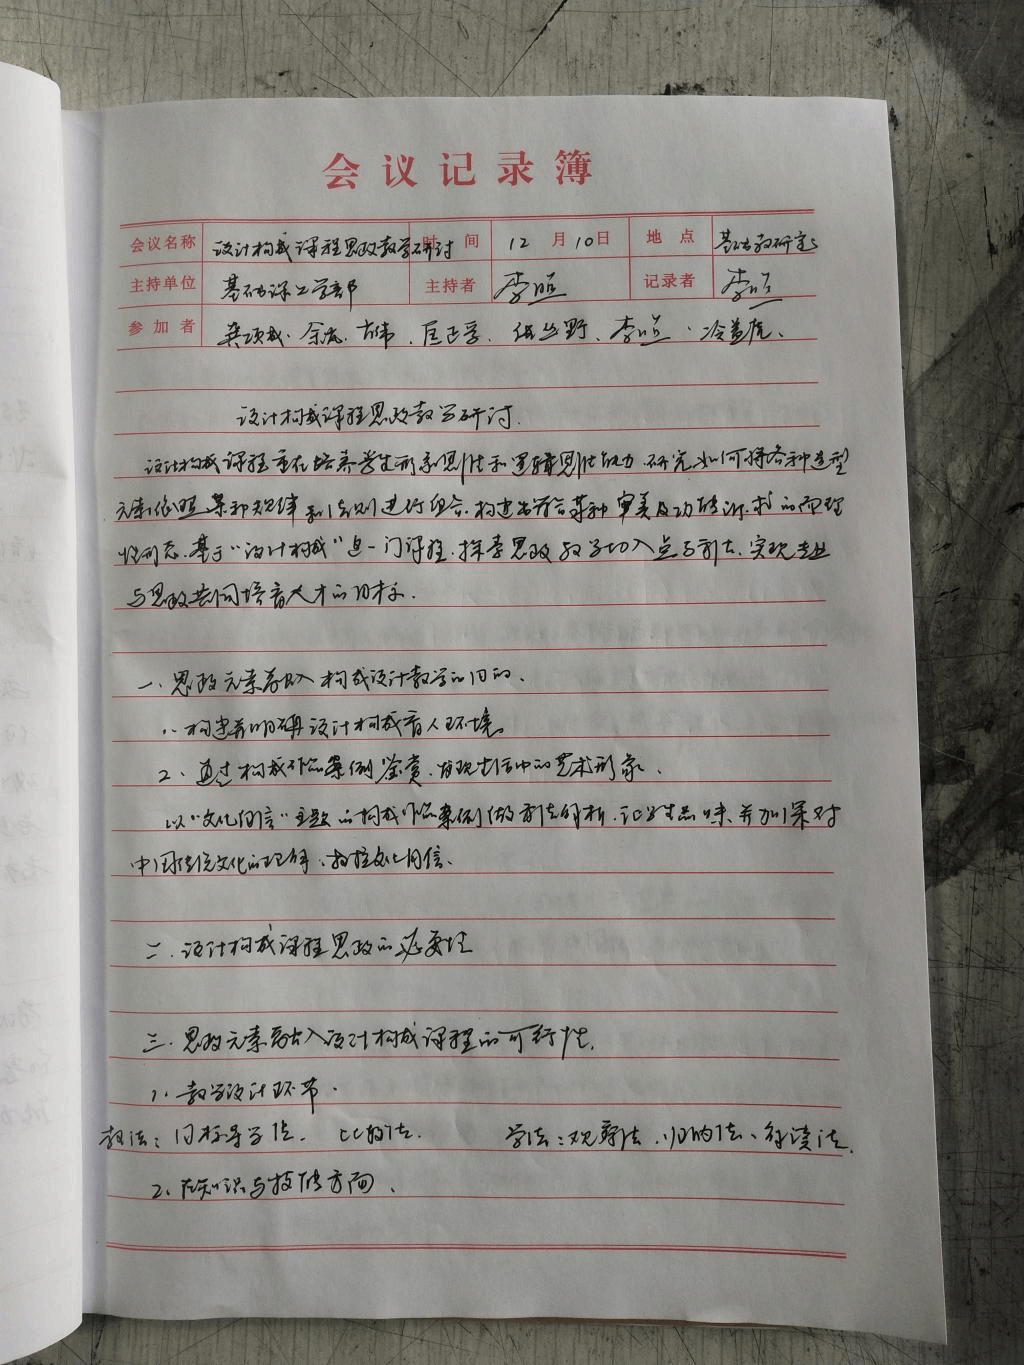 会议记录簿
会议名称 设计构成课程思政教学研讨 时间 12月10日 地点 基础教研室
主持单位 基础课工学部 主持者 李 记录者 李
参加者 余 李 冷益虎、
设计构成课程思政教学研讨.
设计构成课程重在培养学生形象思维和逻辑思维能力.研究如何将各种造型
元素依照某种规律和法则进行组合.构建出符合某种审美及功能诉求的而理
性形态.基于“设计构成”这一门课程.探索思政教学切入点与方法.实现专业
与思政共同培育人才的目标.
一、思政元素融入构成设计教学的目的、
1、构建并明确设计构成育人环境。
2、通过构成作品案例鉴赏.发现生活中的艺术形象、
以“文化自信”主题的构成作品案例做方法分析.让学生品味、并加深对
中国传统文化的理解、树立文化自信、
二、设计构成课程思政的必要性
三、思政元素融入设计构成课程的可行性.
1、教学设计环节.
教法：目标导学法、比较法. 学法：观察法、归纳法、
2、在知识与技能方面、